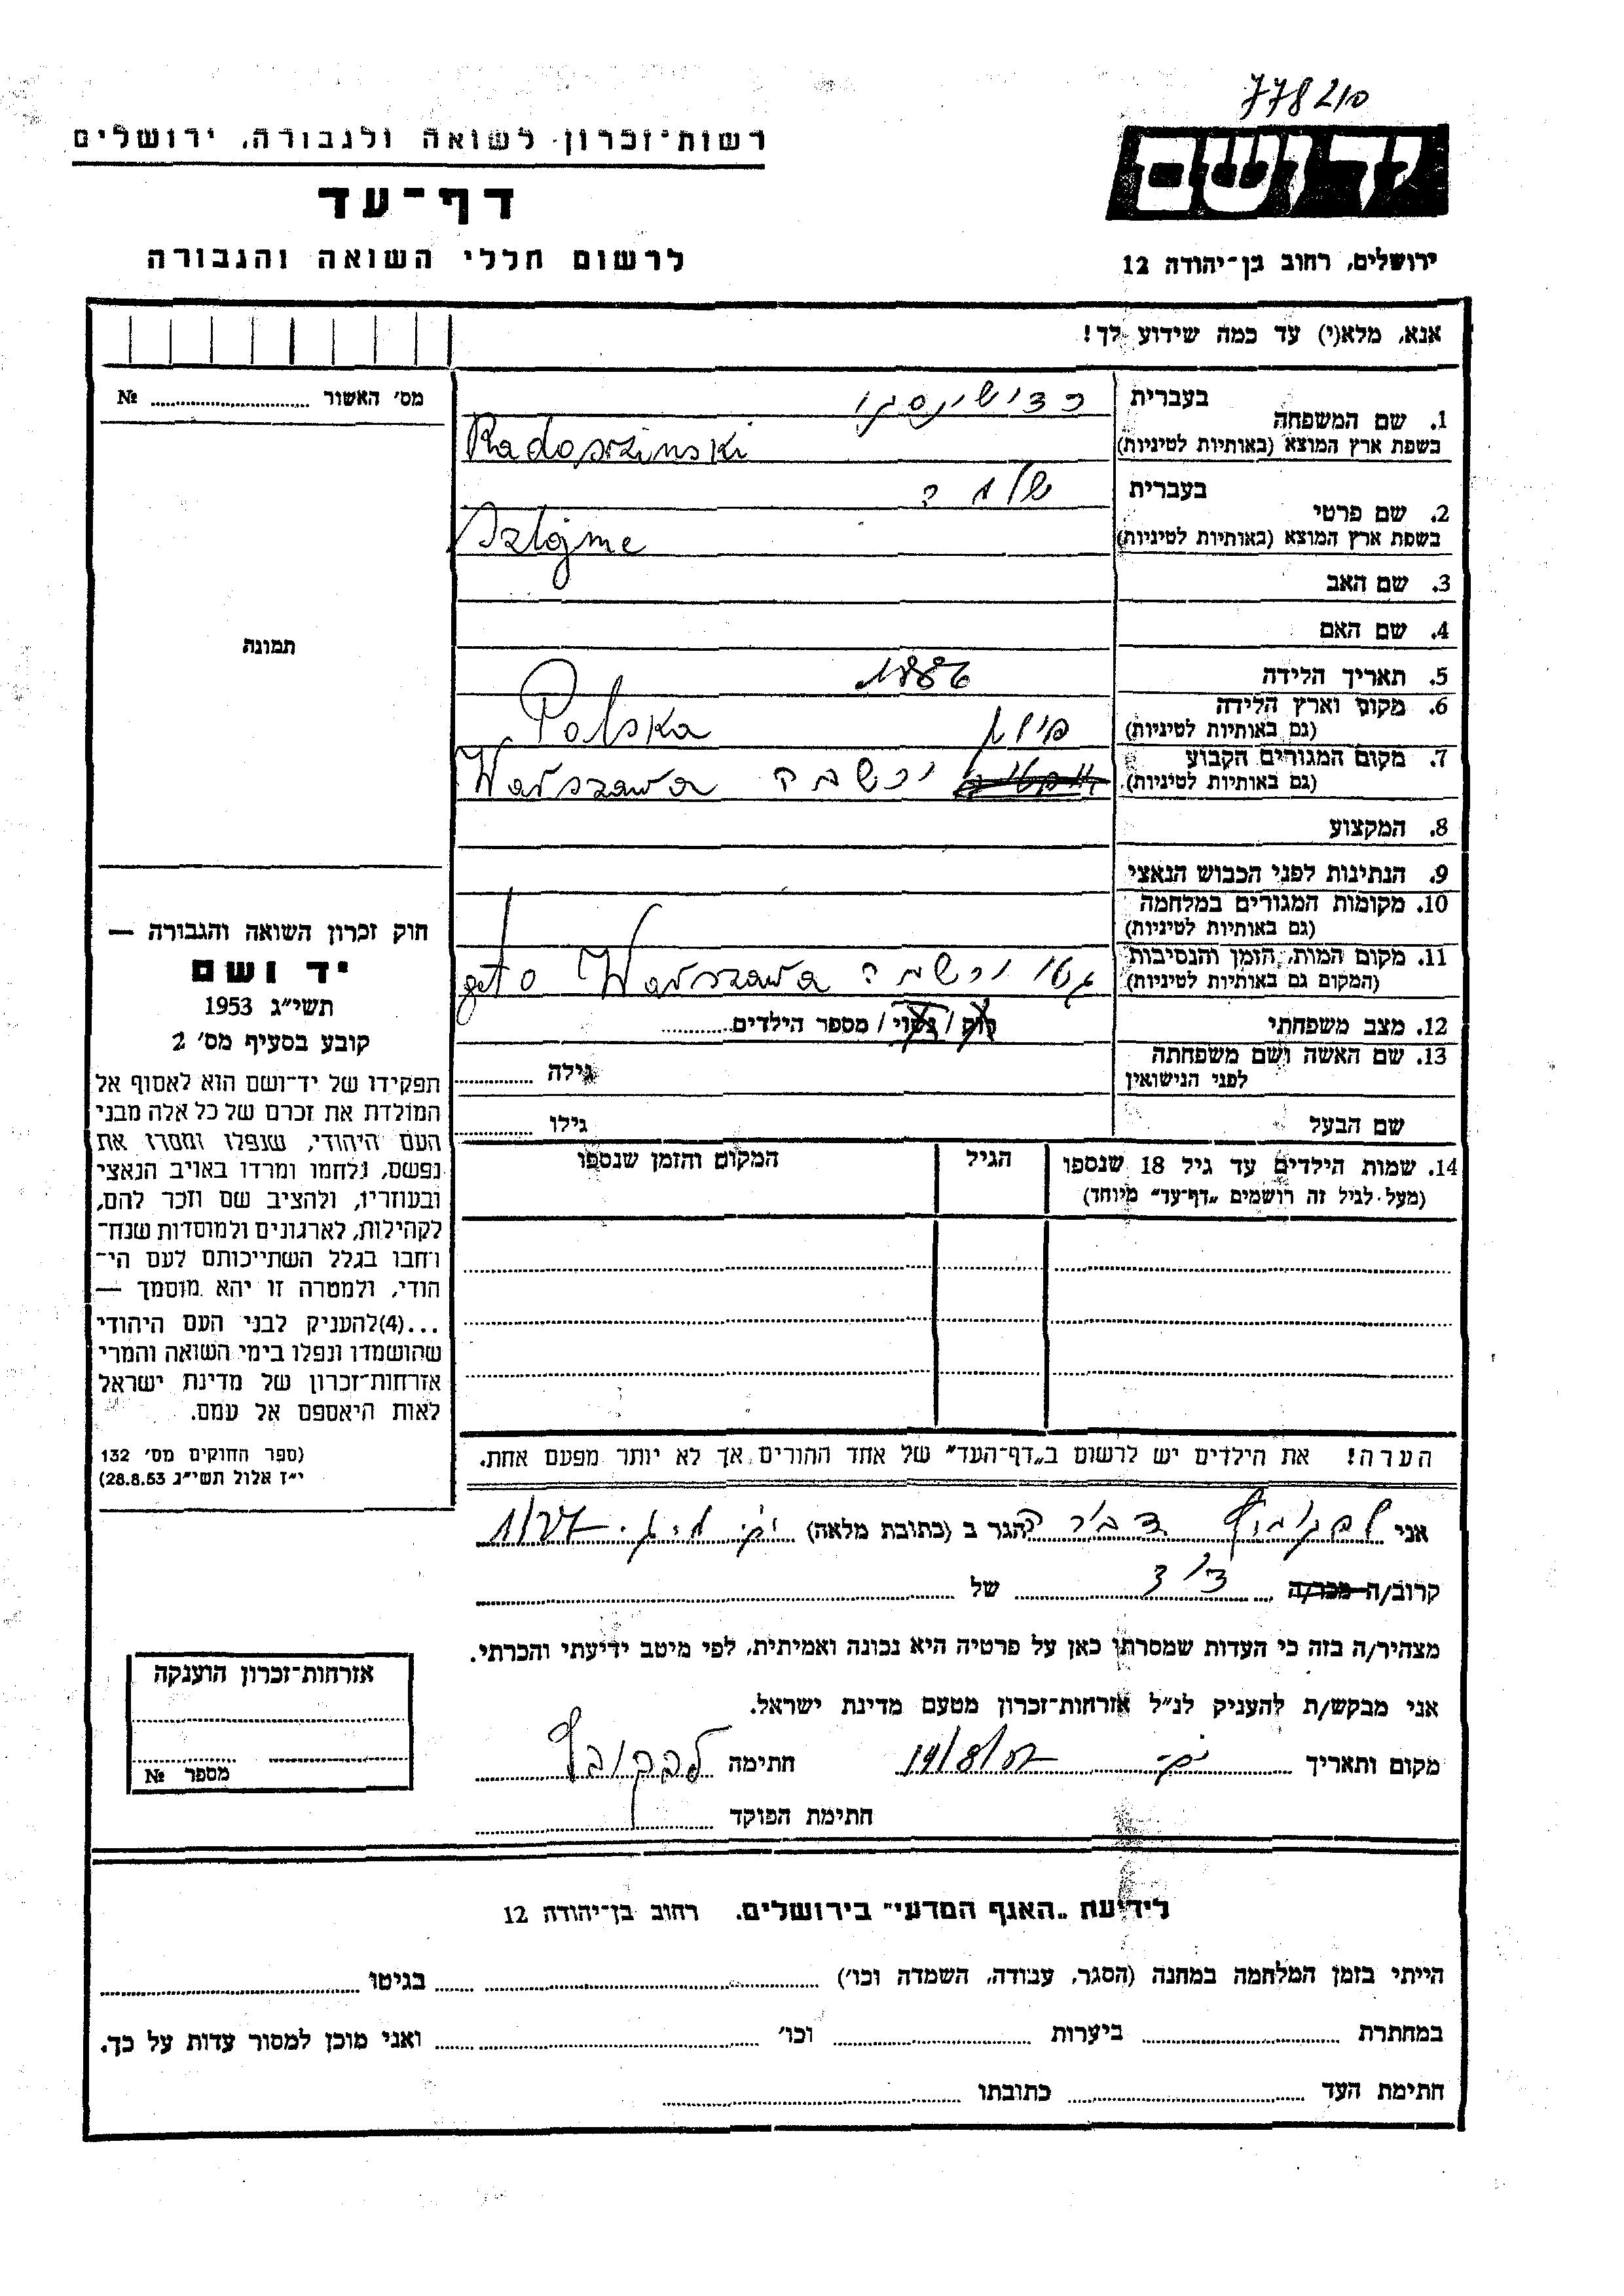 778210
ידושם
רשות־זכרון לשואה ולגבורה, ירושלים
דף־עד
לרשום חללי השואה והגבורה
ירושלים, רחוב בן־יהודה 12
אנא, מלא(י) עד כמה שידוע לך!
מס׳ האשור № ........
1. שם המשפחה
בעברית
בשפת ארץ המוצא (באותיות לטיניות) Radoszinski
2. שם פרטי
בעברית שלמה
בשפת ארץ המוצא (באותיות לטיניות) Szlojme
3. שם האב
4. שם האם
תמונה
5. תאריך הלידה 1886
6. מקום וארץ הלידה
(גם באותיות לטיניות) פולין Polska
7. מקום המגורים הקבוע
(גם באותיות לטיניות) ורשבה Warszawa
8. המקצוע
9. הנתינות לפני הכבוש הנאצי
10. מקומות המגורים במלחמה
(גם באותיות לטיניות)
11. מקום המות, הזמן והנסיבות
(המקום גם באותיות לטיניות) גטו ורשבה geto Warszawa
12. מצב משפחתי רוק / נשוי / מספר הילדים........
13. שם האשה ושם משפחתה
לפני הנישואין
גילה ........
שם הבעל גילו ........
14. שמות הילדים עד גיל 18 שנספו
(מעל לגיל זה רושמים „דף־עד״ מיוחד)
הגיל
המקום והזמן שנספו
חוק זכרון השואה והגבורה —
יד ושם
תשי״ג 1953
קובע בסעיף מס׳ 2
תפקידו של יד־ושם הוא לאסוף אל
המולדת את זכרם של כל אלה מבני
העם היהודי, שנפלו ומסרו את
נפשם, נלחמו ומרדו באויב הנאצי
ובעוזריו, ולהציב שם וזכר להם,
לקהילות, לארגונים ולמוסדות שנח־
רחבו בגלל השתייכותם לעם הי־
הודי, ולמטרה זו יהא מוסמך —
...(4)להעניק לבני העם היהודי
שהושמדו ונפלו בימי השואה והמרי
אזרחות־זכרון של מדינת ישראל
לאות היאספם אל עמם.
(ספר החוקים מס׳ 132
י״ז אלול תשי״ג 28.8.53)
הערה! את הילדים יש לרשום ב„דף־העד״ של אחד ההורים אך לא יותר מפעם אחת.
אני הגר ב (כתובת מלאה)
קרוב/ה מכר/ה של
מצהיר/ה בזה כי העדות שמסרתי כאן על פרטיה היא נכונה ואמיתית, לפי מיטב ידיעתי והכרתי.
אני מבקש/ת להעניק לנ״ל אזרחות־זכרון מטעם מדינת ישראל.
מקום ותאריך חתימה
חתימת הפוקד
אזרחות־זכרון הוענקה
מספר №
לידיעת „האגף המדעי״ בירושלים, רחוב בן־יהודה 12
הייתי בזמן המלחמה במחנה (הסגר, עבודה, השמדה וכו׳) ........ בגיטו ........
במחתרת ........ ביערות ........ וכו׳ ........ ואני מוכן למסור עדות על כך.
חתימת העד ........ כתובתו ........